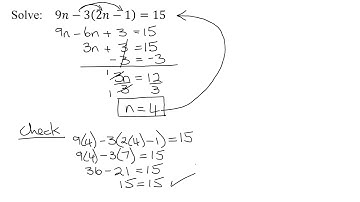 Solve: 9n − 3(2n − 1) = 15
9n − 6n + 3 = 15
3n + 3 = 15
− 3 = −3
3n = 12
3 3
n = 4
Check
9(4) − 3(2(4) − 1) = 15
9(4) − 3(7) = 15
36 − 21 = 15
15 = 15 ✓